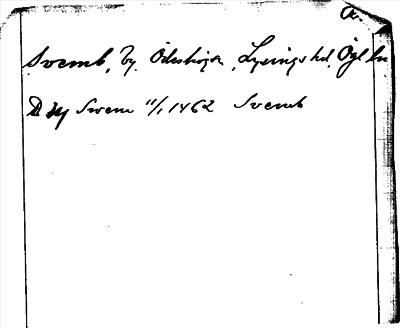 Svemb, by. Ödeshögs s, Lysings hd, Ögl län
D 24 Swem 11/1 1462 Svemb